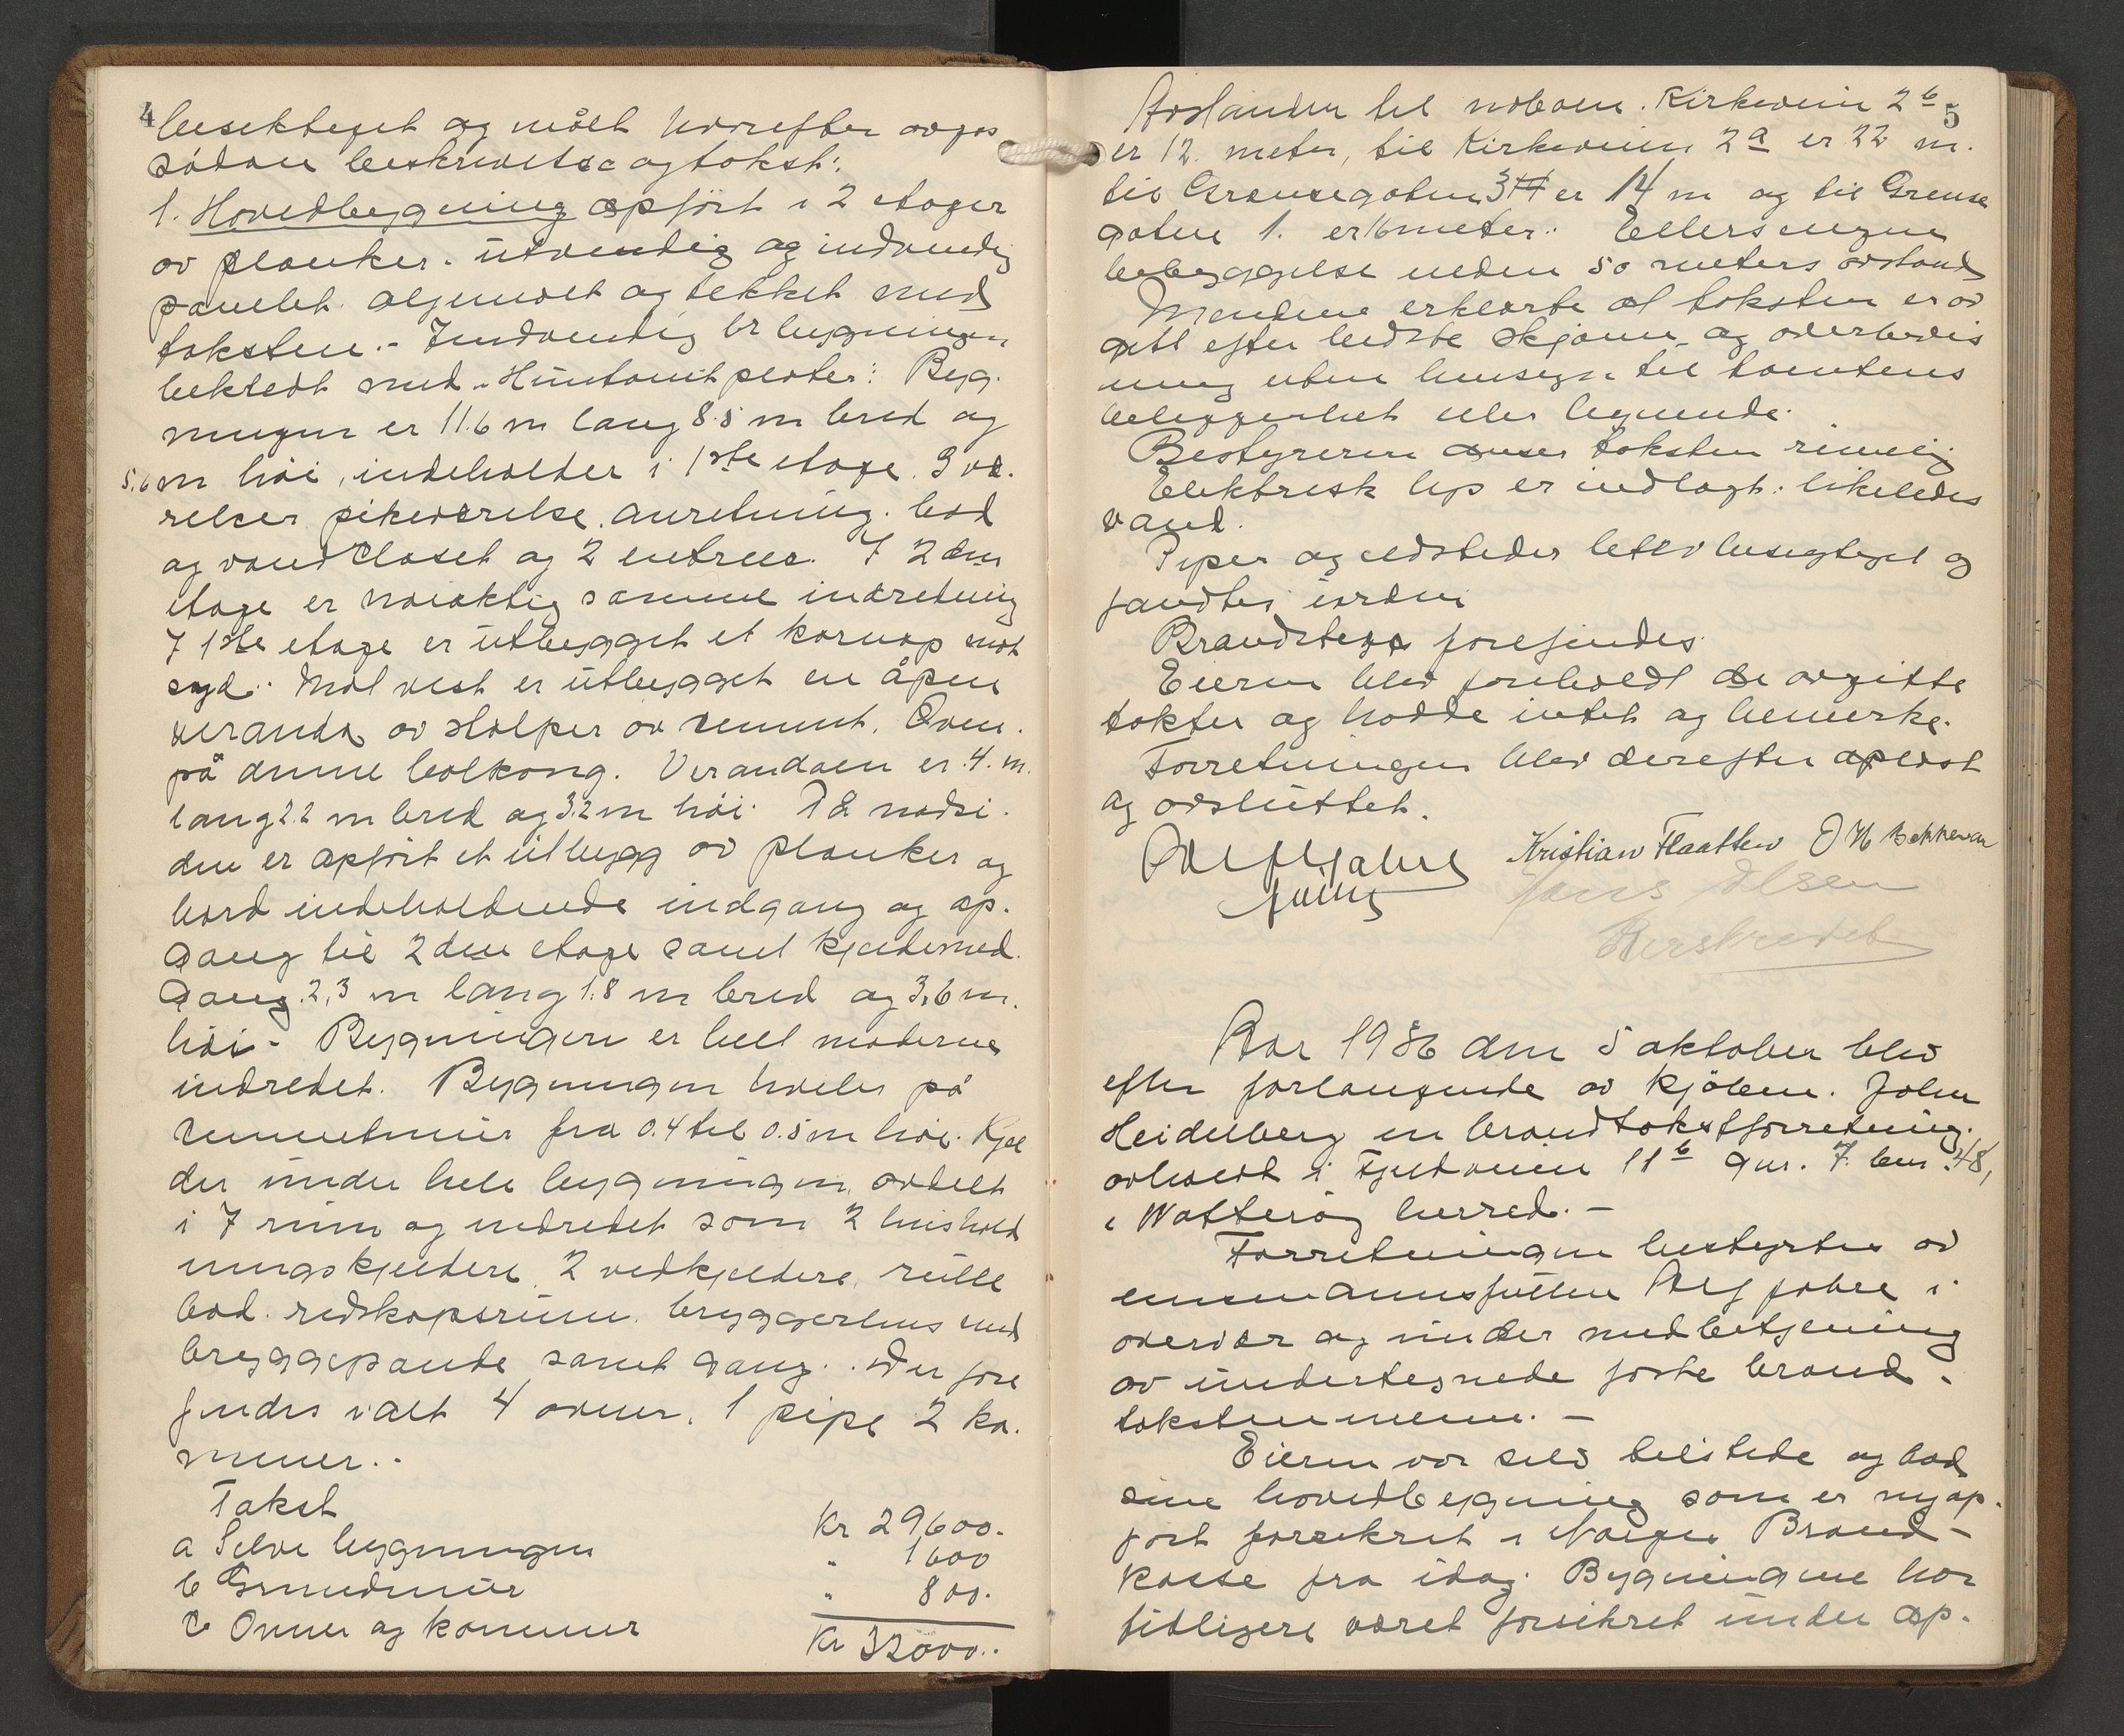 4
besiktiget og målt hvorefter avgas
sådan beskrivelse og takst:
1. Hovedbygning opført i 2 etager
av planker. utvendig og indvendig
panelet. oljemalt og tekket med
taksten. - Indvendig er bygningen
beklædt med Huntonit plater: Byg.
ningen er 11.6 m lang 8.5 m bred og
5.6 m høi, indeholder i 1ste etage. 3 væ.
relser pikeværelse, anretning. bad
og vandcloset og 2 entreer. I 2den
etage er nøiaktig samme indretning
I 1ste etage er utbygget et karnap mot
syd. Mot vest er utbygget en åpen
veranda av stolper av cement. Oven.
på denne balkong. Verandaen er 4. m.
lang 2.2 m bred og 3.2 m høi. På nordsi.
den er opført et utbygg av planker og
bord indeholdende indgang og op.
gang til 2den etage samt kjeldernedg.
gang 2,3 m lang 1.8 m bred og 3,6 m.
høi - Bygningen er helt moderne
indredet. Bygningen hviler på
cementmur fra 0.4 til 0.5 m høi. Kjel
der under hele bygningen, avdelt
i 7 rum og indredet som 2 hushold
ningskjeldere, 2 vedkjeldere, rulle
bod. redskapsrum. bryggerhus med
bryggepande samt gang. Der fore
findes ialt 4 ovner, 1 pipe 2 ka.
miner..
Takst
a Selve bygningen Kr 29600.
b Grundmur " 1600
c Ovner og kaminer " 800.
Kr 32000..
5
Avstanden til naboen. Kirkeveien 2b
er 12. meter, til Kirkeveien 2a er 22 m.
til Grensegaten 3 er 14 m og til Grense
gaten 1. er 16 meter. Ellers ingen
bebyggelse neden 50 meters avstand
Mendene erklærte at taksten er av
gitt efter bedste skjønn og overbevis
ning uten hensyn til tomtens
beliggenhet eller lignende.
Bestyreren anser taksten rimelig
Elektrisk lys er indlagt: likeledes
vand.
Piper og ildsteder blev besigtiget og
fandtes iorden
Brandstege forefindes.
Eieren blev foreholdt de avgitte
takster og hadde intet og bemerke.
Forretningen blev derefter oplæst
og avsluttet.
Kristian Flaatten O H Bakkevar
Hans Olsen
Aar 1936 den 5 oktober blev
efter forlangende av kjøbm. John
Heidelberg en brandtakstforretning.
avholdt i Fjeldveien 11b gnr. 7 bnr. 48,
i Nøtterøy herred. -
Forretningen bestyrtes av
lensmannsfullm Alf Jahre i
overvær og under medbetjening
av undertegnede faste brand.
takstmenn. -
Eieren var selv tilstede og bad
sine hovedbygning som er nyop.
ført forsikret i Norges Brand-
kasse fra idag. Bygningene har
tidligere været forsikret under op.